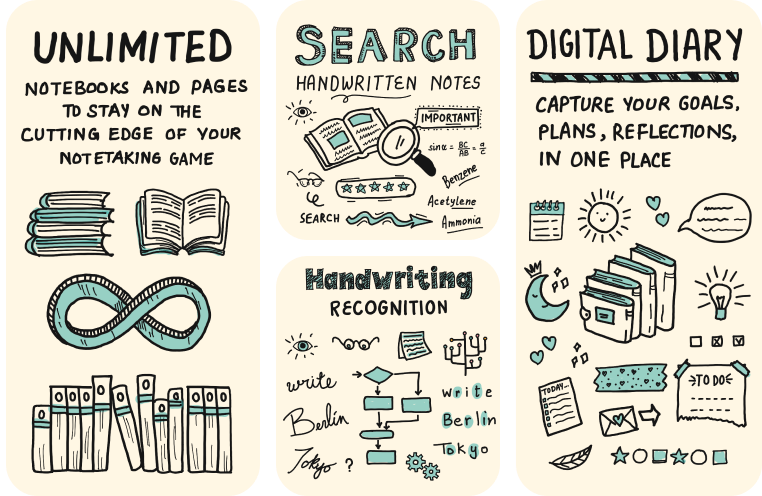 UNLIMITED
NOTEBOOKS AND PAGES
TO STAY ON THE
CUTTING EDGE OF YOUR
NOTETAKING GAME
SEARCH
HANDWRITTEN NOTES
IMPORTANT
sinα = BC/AB = a/c
Benzene
Acetylene
SEARCH
Ammonia
Handwriting
RECOGNITION
write
write
Berlin
Berlin
Tokyo ?
Tokyo
DIGITAL DIARY
CAPTURE YOUR GOALS,
PLANS, REFLECTIONS,
IN ONE PLACE
TODAY...
TO DO